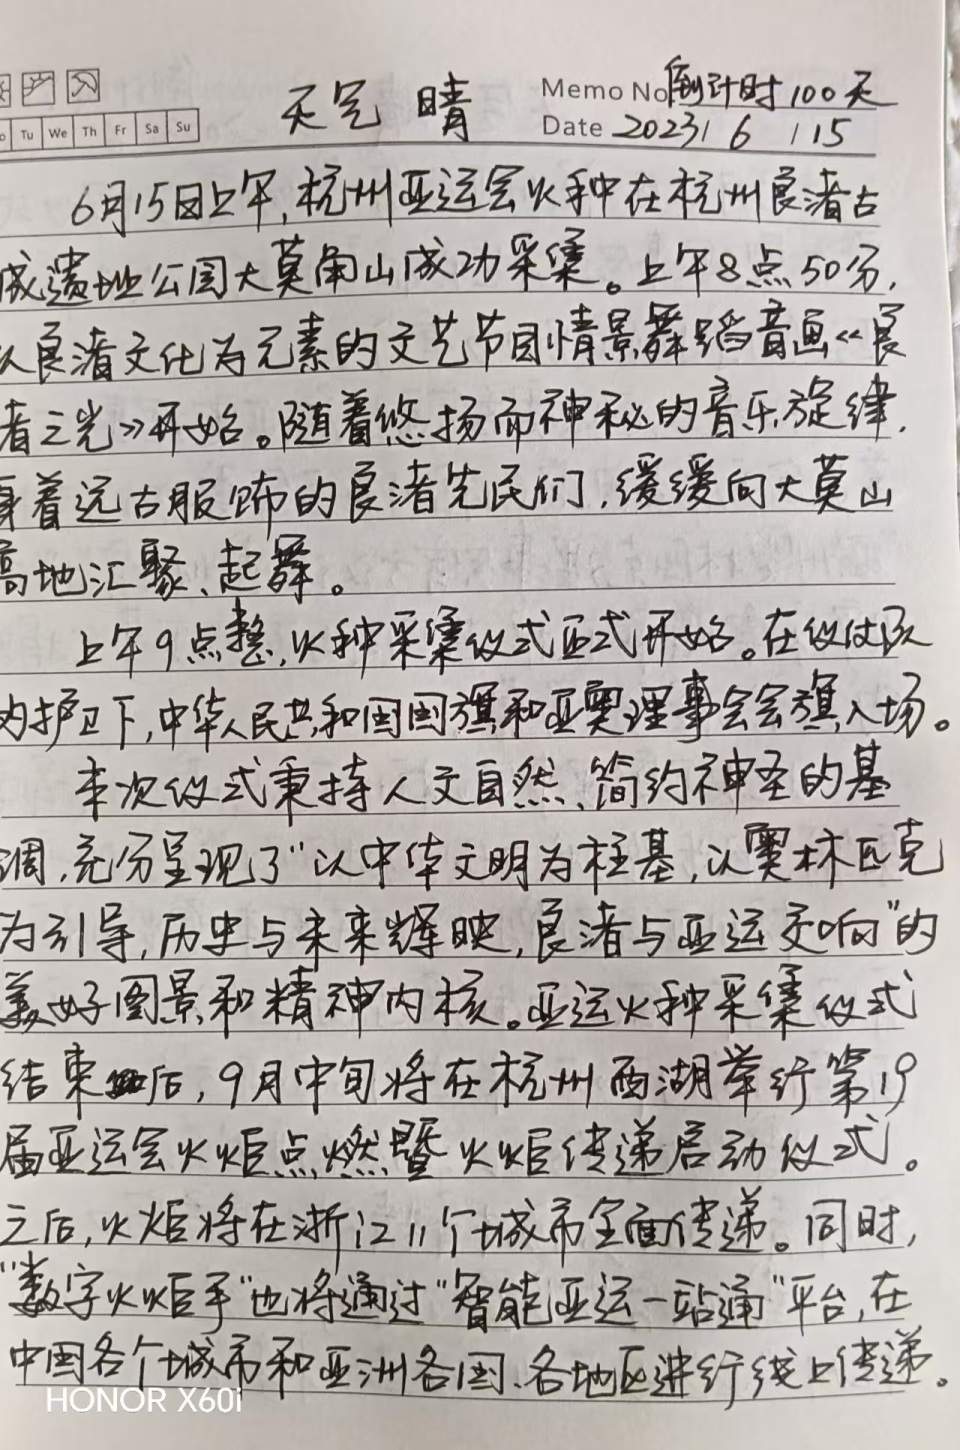 Memo No 倒计时100天
Tu We Th Fr Sa Su
天气 晴
Date 2023/ 6 /15
6月15日上午,杭州亚运会火种在杭州良渚古
城遗址公园大莫角山成功采集。上午8点50分,
以良渚文化为元素的文艺节目情景舞蹈音画《良
渚之光》开始。随着悠扬而神秘的音乐旋律,
身着远古服饰的良渚先民们,缓缓向大莫山
高地汇聚、起舞。
上午9点整,火种采集仪式正式开始。在仪仗队
的护卫下,中华人民共和国国旗和亚奥理事会会旗入场。
本次仪式秉持人文自然、简约神圣的基
调,充分呈现了"以中华文明为柱基,以奥林匹克
为引导,历史与未来辉映,良渚与亚运交响"的
美好图景和精神内核。亚运火种采集仪式
结束后,9月中旬将在杭州西湖举行第19
届亚运会火炬点燃暨火炬传递启动仪式。
之后,火炬将在浙江11个城市全面传递。同时,
"数字火炬手"也将通过"智能亚运一站通"平台,在
中国各个城市和亚洲各国、各地区进行线上传递。
HONOR X60i